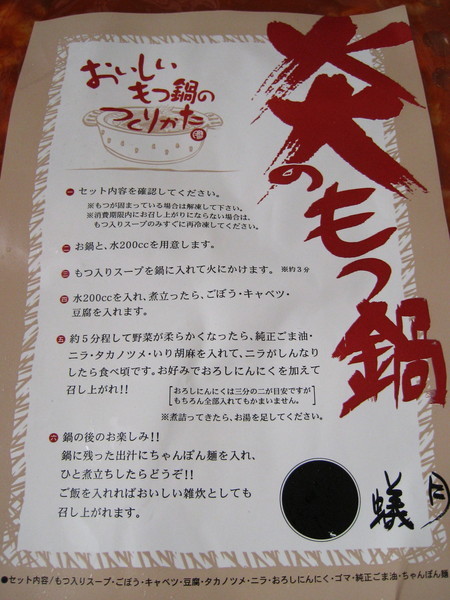 炎のもつ鍋
おいしい
もつ鍋の
つくりかた
一 セット内容を確認してください。
※もつが固まっている場合は解凍して下さい。
※消費期限内にお召し上がりにならない場合は、
もつ入りスープのみすぐに再冷凍してください。
二 お鍋と、水200ccを用意します。
三 もつ入りスープを鍋に入れて火にかけます。※約3分
四 水200ccを入れ、煮立ったら、ごぼう・キャベツ・
豆腐を入れます。
五 約5分程して野菜が柔らかくなったら、純正ごま油・
ニラ・タカノツメ・いり胡麻を入れて、ニラがしんなり
したら食べ頃です。お好みでおろしにんにくを加えて
召し上がれ!!
[おろしにんにくは三分の二が目安ですが
もちろん全部入れてもかまいません。]
※煮詰ってきたら、お湯を足してください。
六 鍋の後のお楽しみ!!
鍋に残った出汁にちゃんぽん麺を入れ、
ひと煮立ちしたらどうぞ!!
ご飯を入れればおいしい雑炊としても
召し上がれます。
蟻月
●セット内容/もつ入りスープ・ごぼう・キャベツ・豆腐・タカノツメ・ニラ・おろしにんにく・ゴマ・純正ごま油・ちゃんぽん麺